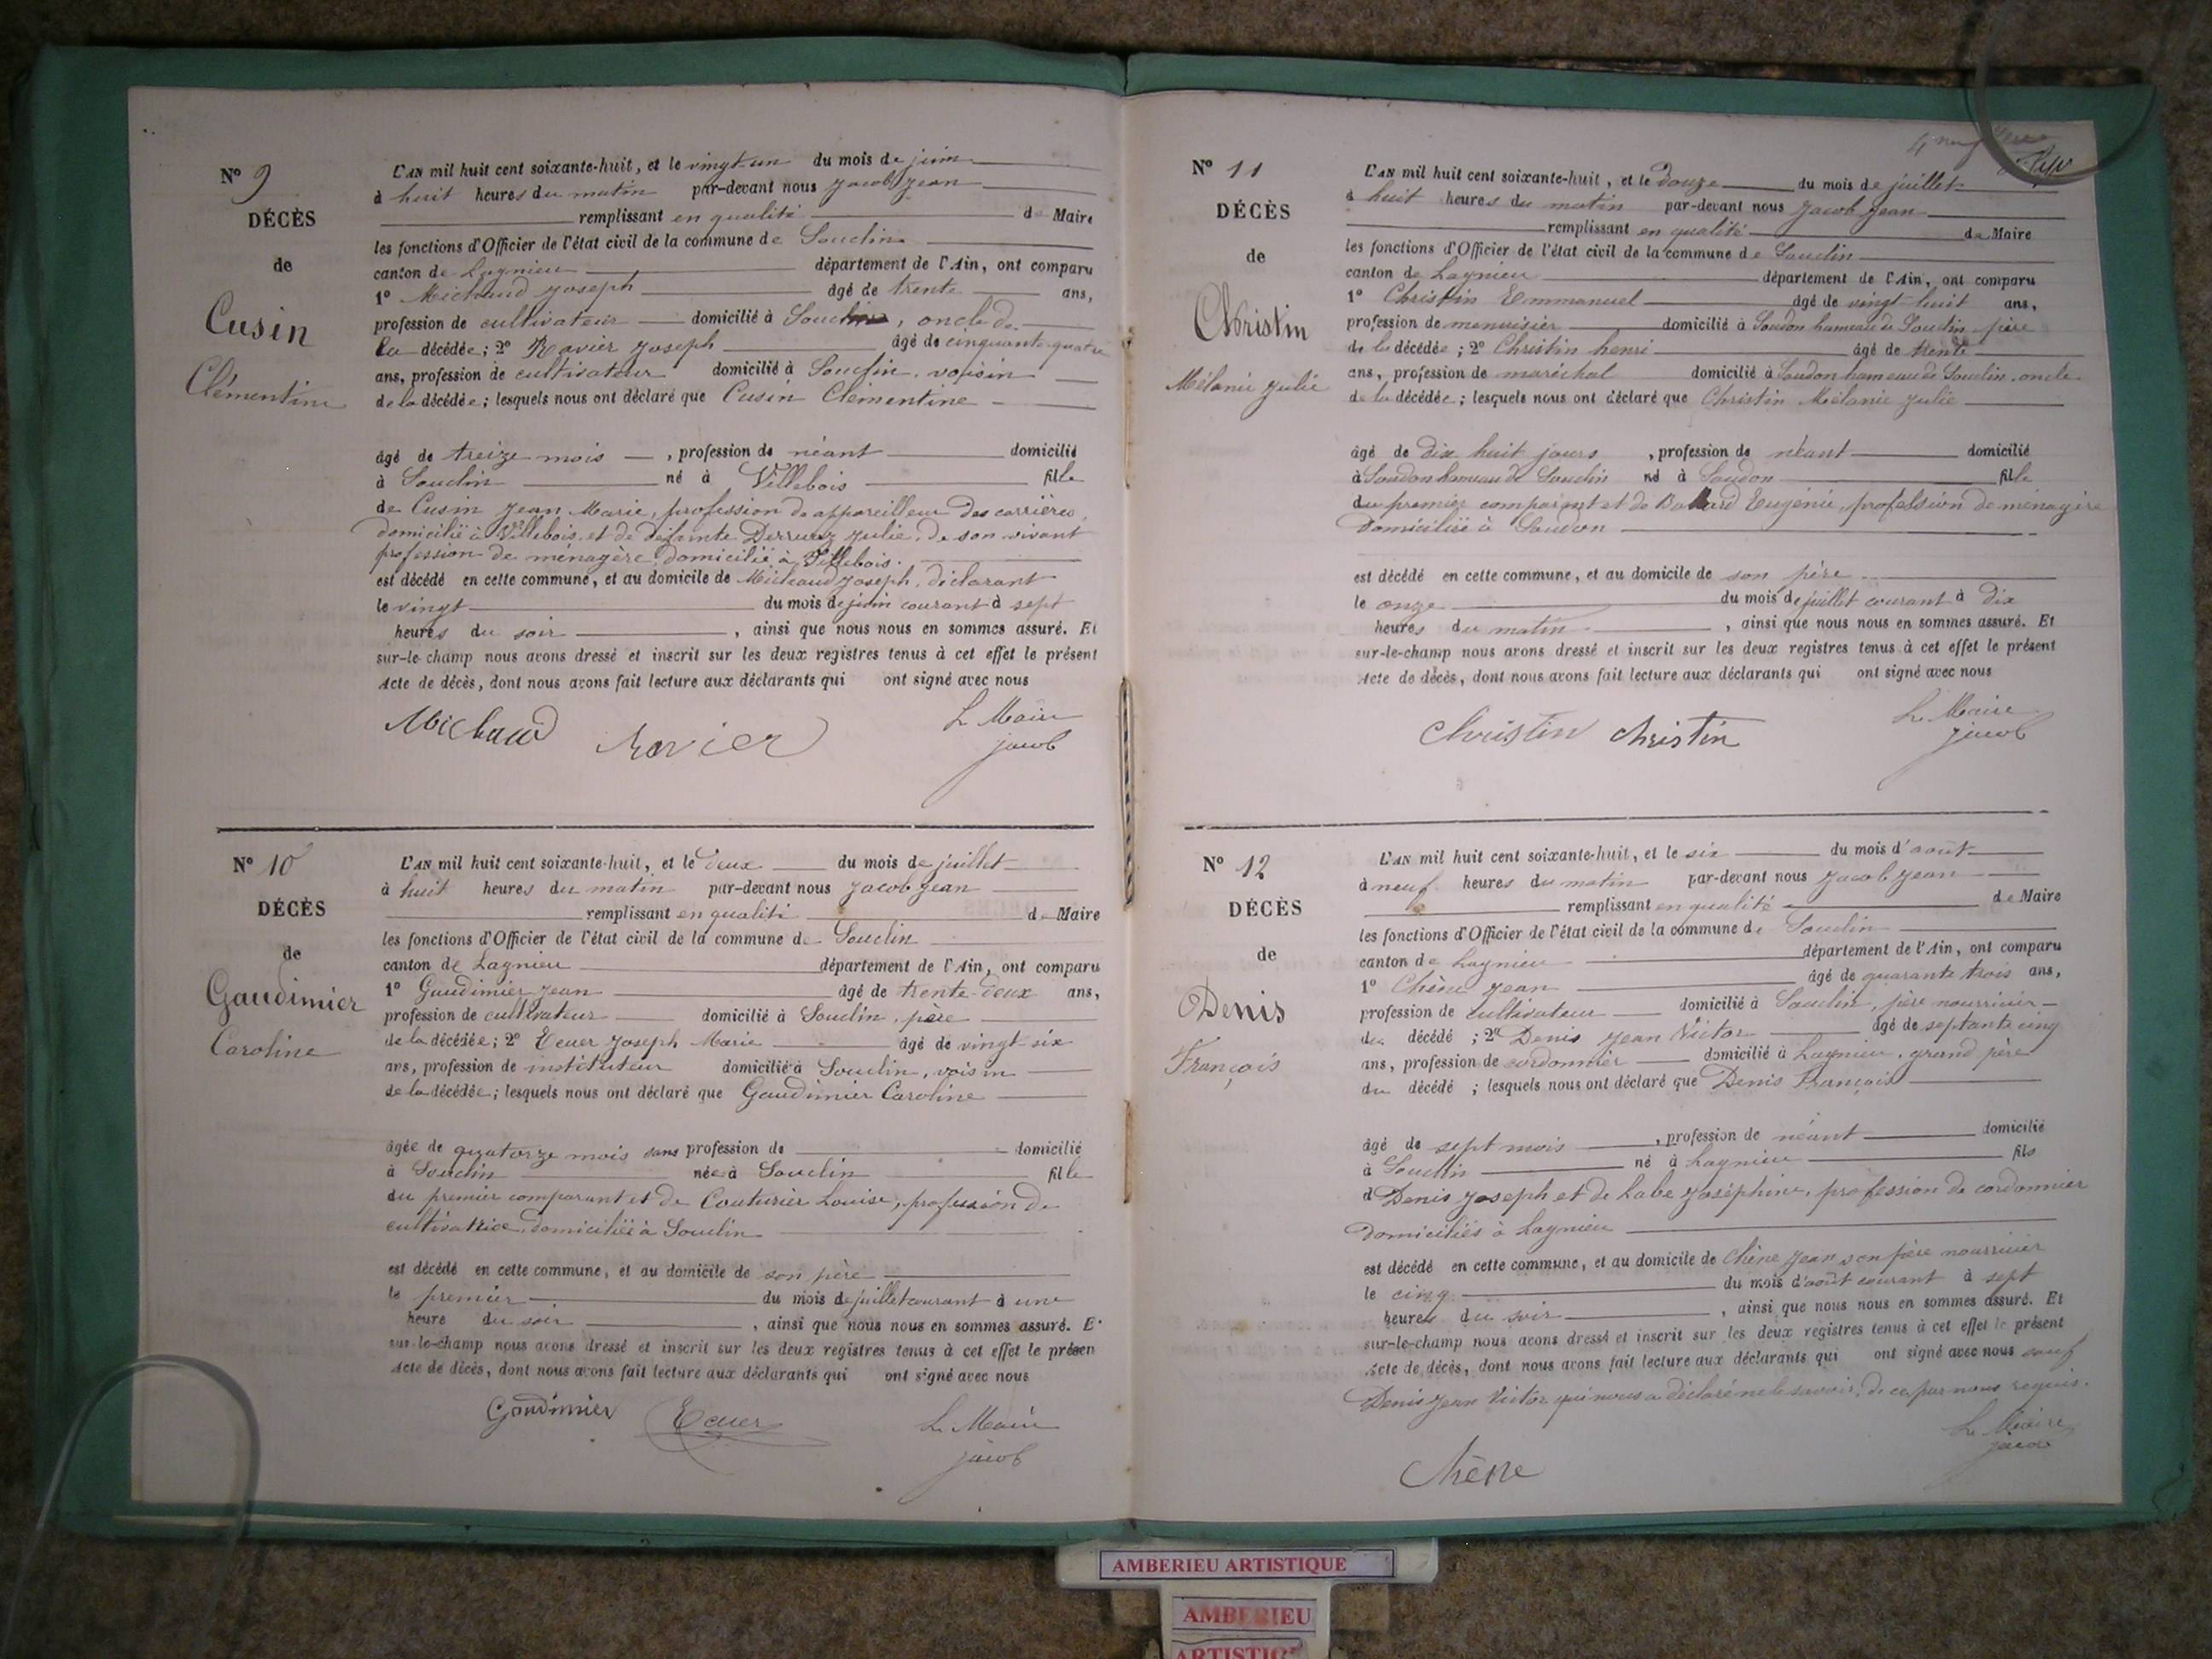 N° 9
DÉCÈS
de
Cusin
Clémentine
L'AN mil huit cent soixante-huit, et le vingt un du mois de juin
à huit heures du matin par-devant nous Jacob Jean
remplissant en qualité de Maire
les fonctions d'Officier de l'état civil de la commune de Souclin
canton de Lagnieu département de l'Ain, ont comparu
1° Michaud Joseph âgé de trente ans,
profession de cultivateur domicilié à Souclin, oncle de
la décédée; 2° Ravier Joseph âgé de cinquante quatre
ans, profession de cultivateur domicilié à Souclin, voisin
de la décédée; lesquels nous ont déclaré que Cusin Clémentine
âgé de treize mois, profession de néant domicilié
à Souclin né à Villebois fille
de Cusin Jean Marie, profession de appareilleur des carrières,
domicilié à Villebois et de défunte Derruaz Julie, de son vivant
profession de ménagère domiciliée à Villebois.
est décédé en cette commune, et au domicile de Michaud Joseph, déclarant
le vingt du mois de juin courant à sept
heures du soir, ainsi que nous nous en sommes assuré. Et
sur-le-champ nous avons dressé et inscrit sur les deux registres tenus à cet effet le présent
Acte de décès, dont nous avons fait lecture aux déclarants qui ont signé avec nous
Michaud Ravier Le Maire
jacob
N° 10
DÉCÈS
de
Gaudimier
Caroline
L'AN mil huit cent soixante-huit, et le deux du mois de juillet
à huit heures du matin par-devant nous Jacob Jean
remplissant en qualité de Maire
les fonctions d'Officier de l'état civil de la commune de Souclin
canton de Lagnieu département de l'Ain, ont comparu
1° Gaudimier Jean âgé de trente-deux ans,
profession de cultivateur domicilié à Souclin, père
de la décédée; 2° Tener Joseph Marie âgé de vingt six
ans, profession de instituteur domicilié à Souclin, voisin
de la décédée; lesquels nous ont déclaré que Gaudimier Caroline
âgée de quatorze mois sans profession de domicilié
à Souclin née à Souclin fille
du premier comparant et de Couturier Louise, profession de
cultivatrice, domiciliée à Souclin
est décédé en cette commune, et au domicile de son père
le premier du mois de juillet courant à une
heure du soir, ainsi que nous nous en sommes assuré. E
sur-le-champ nous avons dressé et inscrit sur les deux registres tenus à cet effet le présen
Acte de décès, dont nous avons fait lecture aux déclarants qui ont signé avec nous
Gaudimier Le Maire
jacob
N° 11
DÉCÈS
de
Christin
Mélanie Julie
L'AN mil huit cent soixante-huit, et le douze du mois de juillet
à huit heures du matin par-devant nous Jacob Jean
remplissant en qualité de Maire
les fonctions d'Officier de l'état civil de la commune de Souclin
canton de Lagnieu département de l'Ain, ont comparu
1° Christin Emmanuel âgé de vingt-huit ans,
profession de menuisier domicilié à Soudon hameau de Souclin père
de la décédée; 2° Christin henri âgé de trente
ans, profession de maréchal domicilié à Soudon hameau de Souclin oncle
de la décédée; lesquels nous ont déclaré que Christin Mélanie Julie
âgé de dix huit jours, profession de néant domicilié
à Soudon hameau de Souclin né à Soudon fille
du premier comparant et de Eugénie, profession de ménagère
Domiciliée à Soudon
est décédé en cette commune, et au domicile de son père
le onze du mois de juillet courant à dix
heures du matin, ainsi que nous nous en sommes assuré. Et
sur-le-champ nous avons dressé et inscrit sur les deux registres tenus à cet effet le présent
Acte de décès, dont nous avons fait lecture aux déclarants qui ont signé avec nous
Christin christin Le Maire
jacob
N° 12
DÉCÈS
de
Denis
François
L'AN mil huit cent soixante-huit, et le six du mois d'août
à neuf heures du matin par-devant nous Jacob Jean
remplissant en qualité de Maire
les fonctions d'Officier de l'état civil de la commune de Souclin
canton de Lagnieu département de l'Ain, ont comparu
1° Chêne Jean âgé de quarante trois ans,
profession de cultivateur domicilié à Souclin, père nourricier
du décédé; 2° Denis Jean Victor âgé de septante cinq
ans, profession de cordonnier domicilié à Lagnieu, grand père
du décédé; lesquels nous ont déclaré que Denis François
âgé de sept mois, profession de néant domicilié
à Souclin né à Lagnieu fils
d Denis Joseph et de Labe Joséphine, profession de cordonnier
domiciliés à Lagnieu
est décédé en cette commune, et au domicile de Chêne Jean son père nourricier
le cinq du mois d'août courant à sept
heures du soir, ainsi que nous nous en sommes assuré. Et
sur-le-champ nous avons dressé et inscrit sur les deux registres tenus à cet effet le présent
Acte de décès, dont nous avons fait lecture aux déclarants qui ont signé avec nous sauf
Denis Jean Victor qui nous a déclaré ne le savoir, de ce par nous requis.
Le Maire
jacob
Chêne
AMBERIEU ARTISTIQUE
AMBERIEU
ARTISTIQ